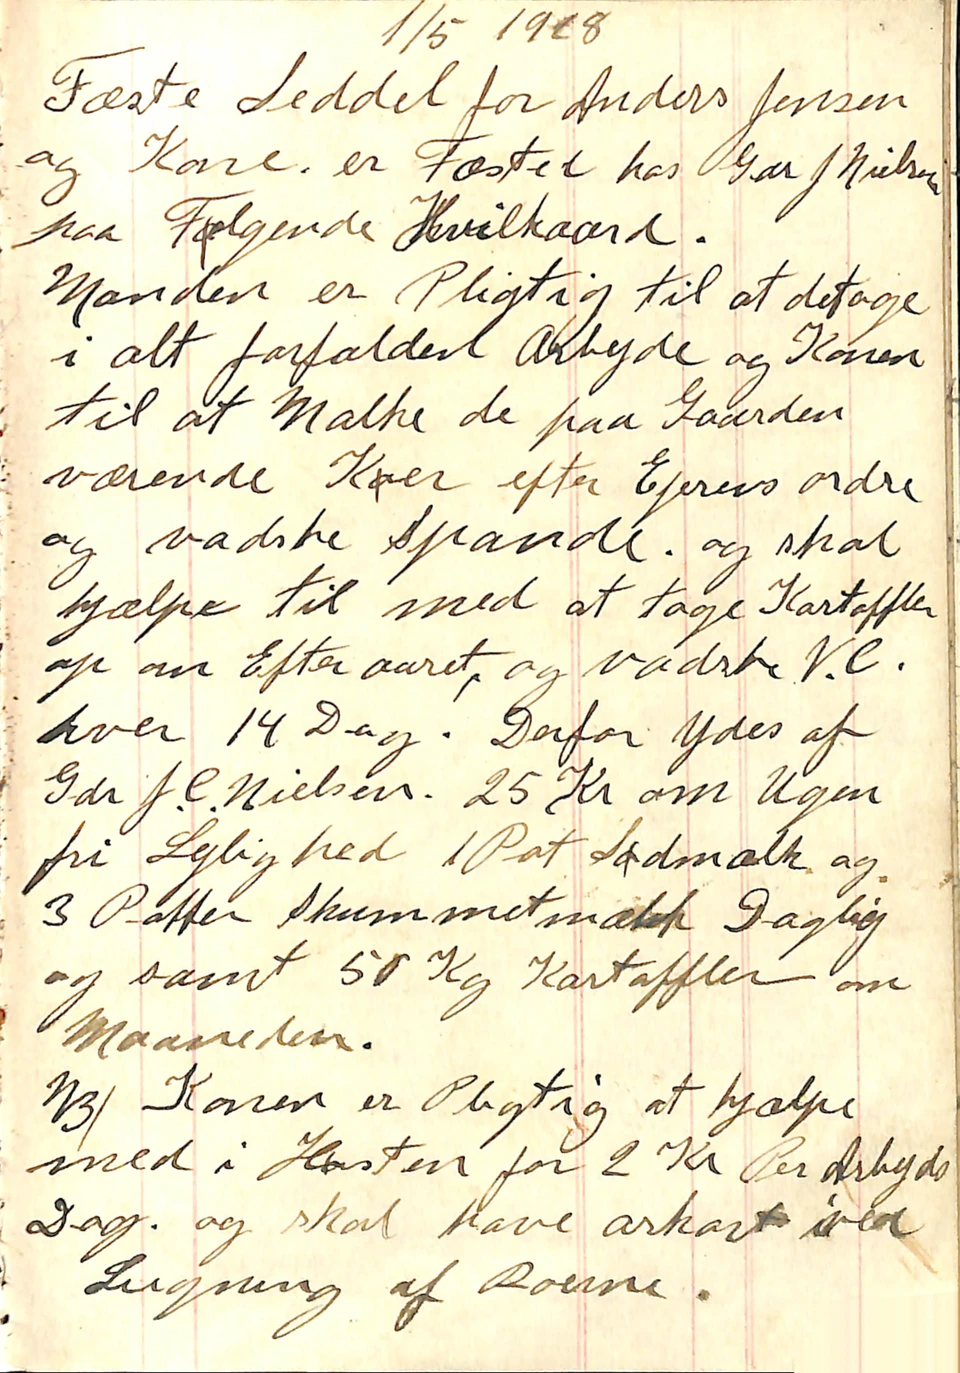 1/5 1918
Fæste Seddel for Anders Jensen
og Kone. er Fæstet hos Gdr J Nielsen
paa Følgende Hvilkaard.
Manden er Pligtig til at deltage
i alt forfaldent Arbyde og Konen
til at Malke de paa Gaarden
værende Køer efter Ejerens ordre
og vadske Spande. og skal
hjælpe til med at tage Kartoffler
op om Efteraaret, og vadske V.C.
hver 14 Dag. Derfor Ydes af
Gdr J.C. Nielsen. 25 Kr om Ugen
fri Leylighed 1 Pot Sødmælk og
3 Potter Skummetmælk Daglig
og samt 50 Kg Kartoffler om
Maaneden.
NB/ Konen er Pligtig at hjælpe
med i Høsten for 2 Kr Per Arbyds
Dag. og skal have arkort ved
Lugning af Roerne.